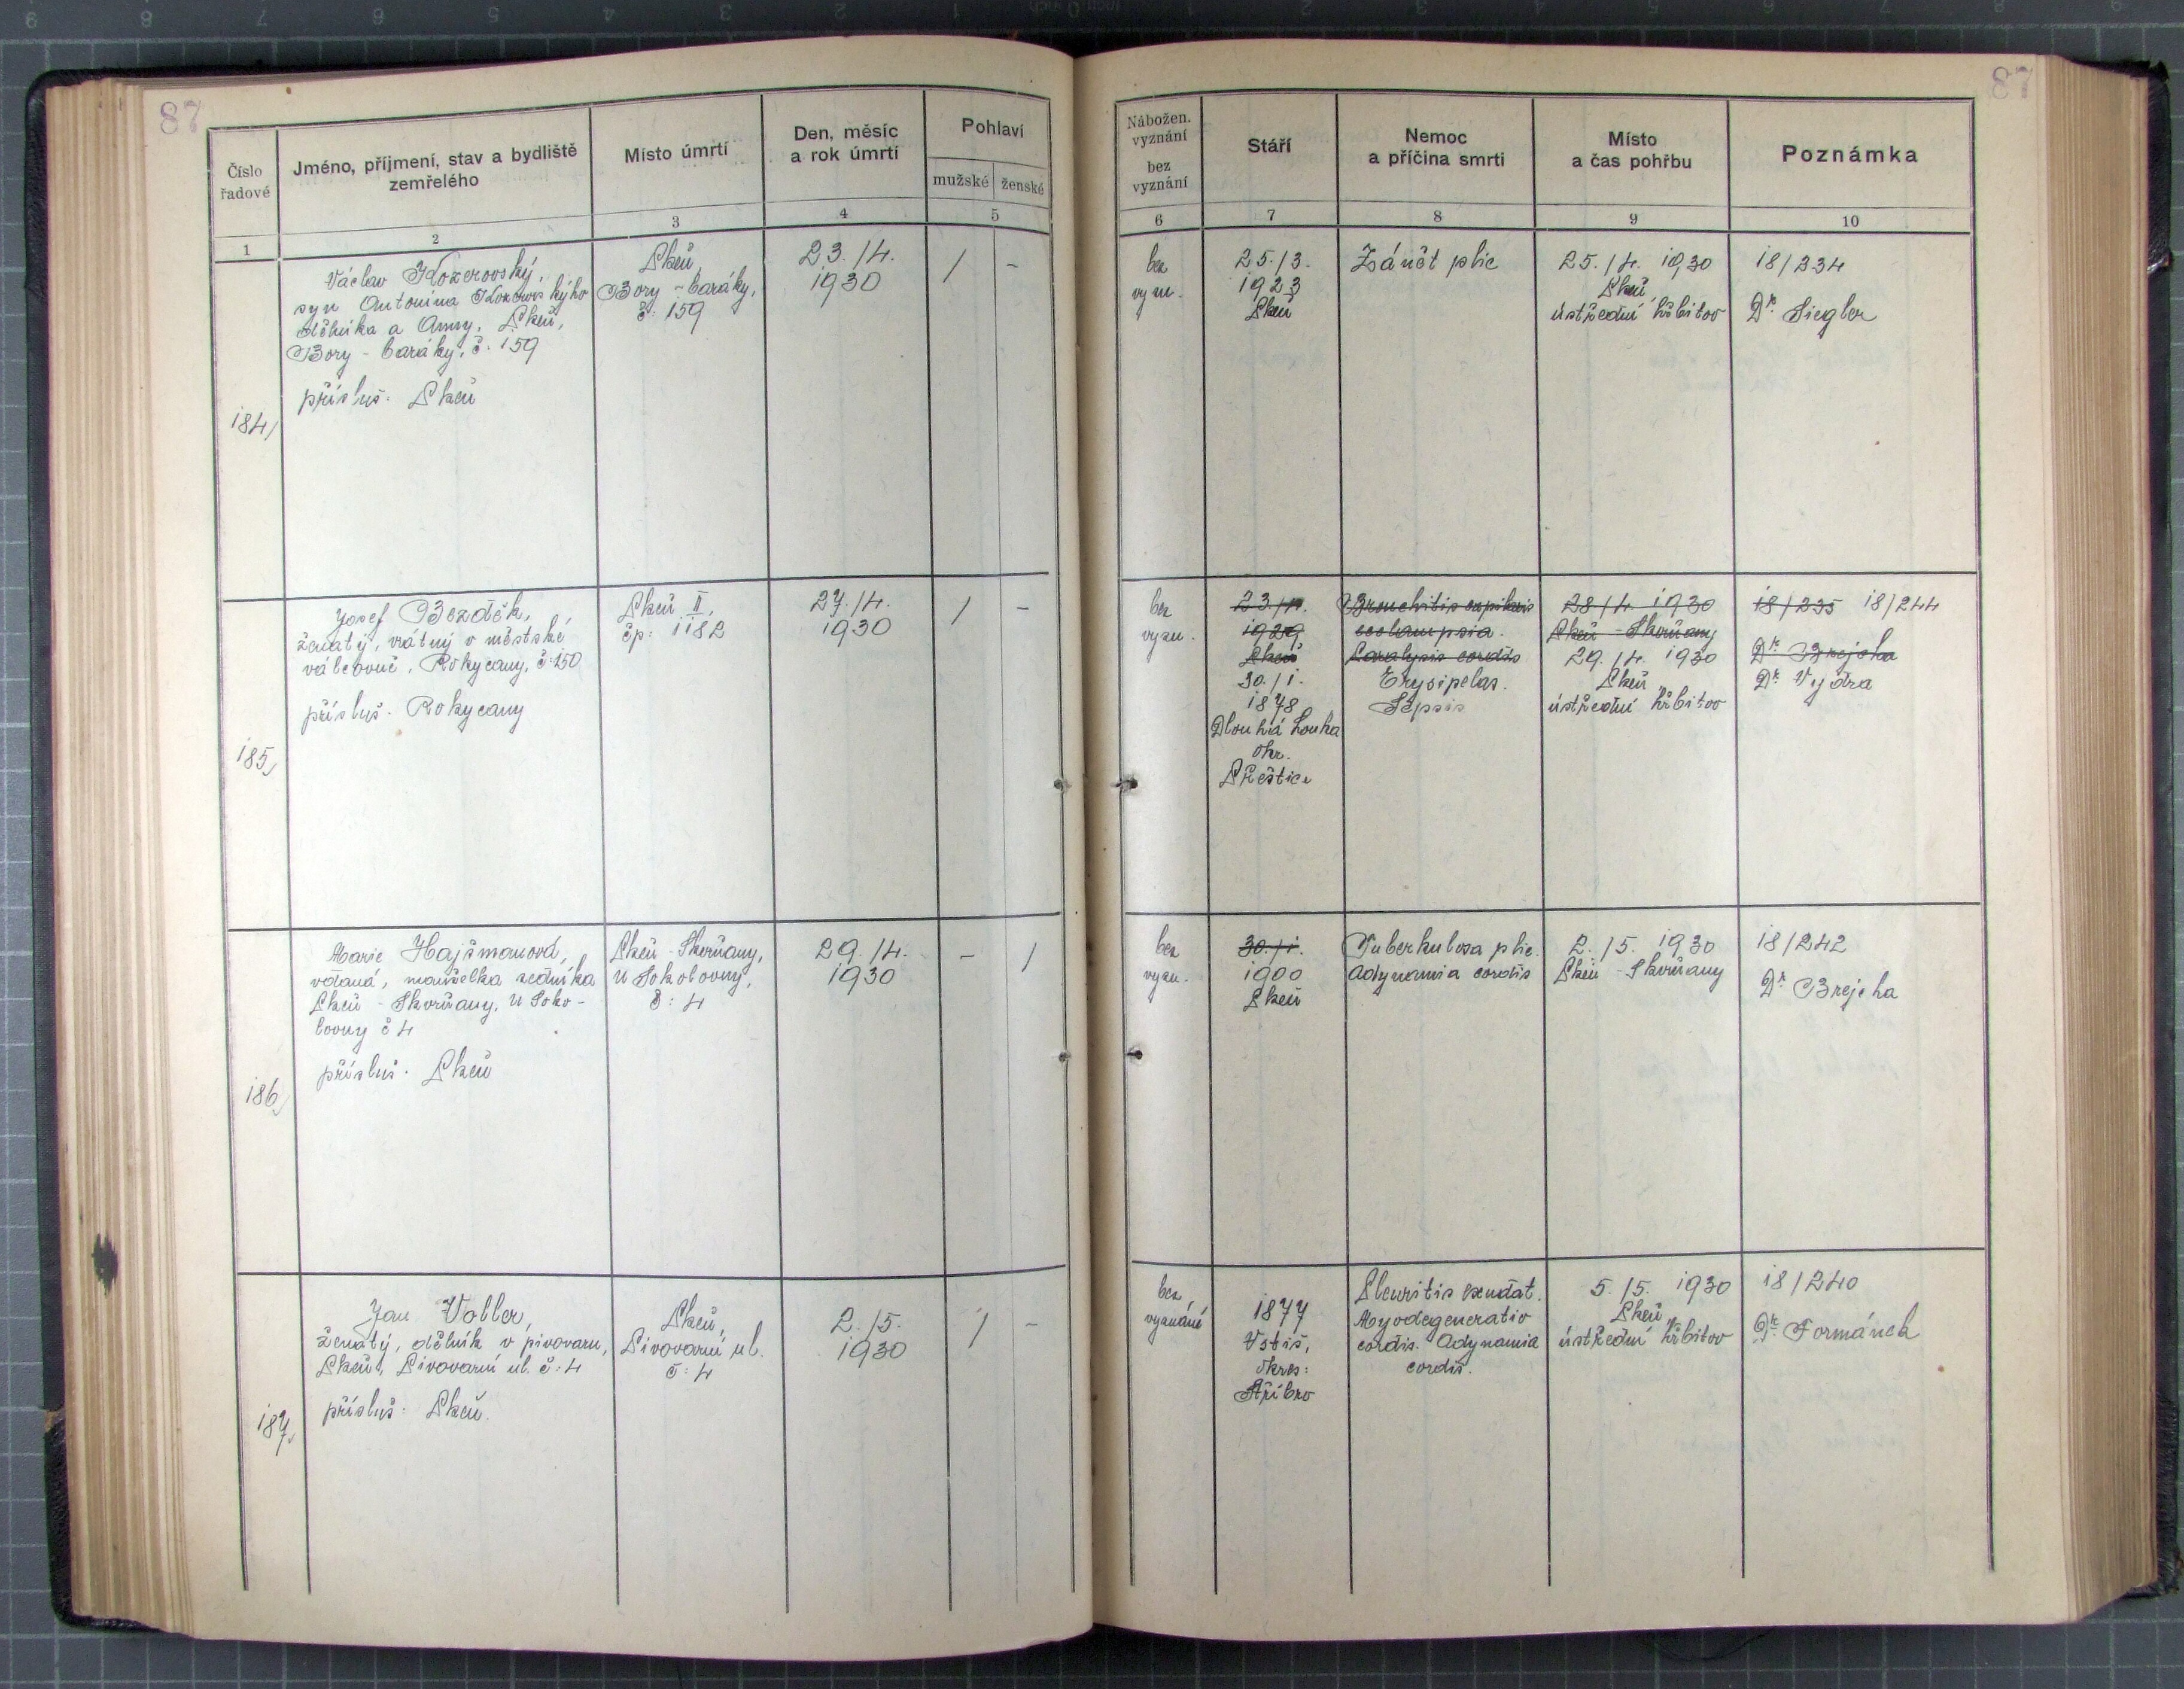 87
Číslo řadové
Jméno, příjmení, stav a bydliště zemřelého
Místo úmrtí
Den, měsíc a rok úmrtí
Pohlaví
mužské
ženské
1
2
3
4
5
184/
Václav Kozerovský,
syn Antonína Kozerovského
dělníka a Anny, Plzeň,
Bory - baráky, č. 159
přísluš. Plzeň
Plzeň
Bory - baráky,
č: 159
23./4.
1930
/
-
185/
Josef Bezděk,
ženatý, vrátný v městské
válcovně, Rokycany, č. 150
přísluš. Rokycany
Plzeň II,
čp: 1182
27./4.
1930
/
-
186/
Marie Hajšmanová,
vdaná, manželka zedníka
Plzeň - Skvrňany, U Soko-
lovny č 4
přísluš. Plzeň
Plzeň - Skvrňany,
U Sokolovny,
č: 4
29./4.
1930
-
/
187/
Jan Voller,
ženatý, dělník v pivovaru,
Plzeň, Pivovarní ul. č: 4
přísluš: Plzeň.
Plzeň,
Pivovarní ul.
č: 4
2./5.
1930
/
-
87
Nábožen. vyznání
bez vyznání
Stáří
Nemoc a příčina smrti
Místo a čas pohřbu
Poznámka
6
7
8
9
10
bez
vyzn.
25./3.
1923
Plzeň
Zánět plic
25./4. 1930
Plzeň,
ústřední hřbitov
18/234
Dr. Siegler
bez
vyzn.
1929
Plzeň
30./1.
1878
Dlouhá Louka
okr.
Přeštice
Bronchitis capilaris
ecclampsia.
Paralysis cordis
Erysipelas.
Sepsis
28/4. 1930
Plzeň - Skvrňany
29./4. 1930
Plzeň,
ústřední hřbitov
18/235 18/244
Dr. Brejcha
Dr. Vydra
bez
vyzn.
30./1.
1900
Plzeň
Tuberkulosa plic.
Adynamia cordis
2./5. 1930
Plzeň - Skvrňany
18/242
Dr. Brejcha
bez
vyznání
1877
Vstiš,
okres:
Stříbro
Pleuritis exudat.
Myodegeneratio
cordis. Adynamia
cordis.
5./5. 1930
Plzeň,
ústřední hřbitov
18/240
Dr. Formánek